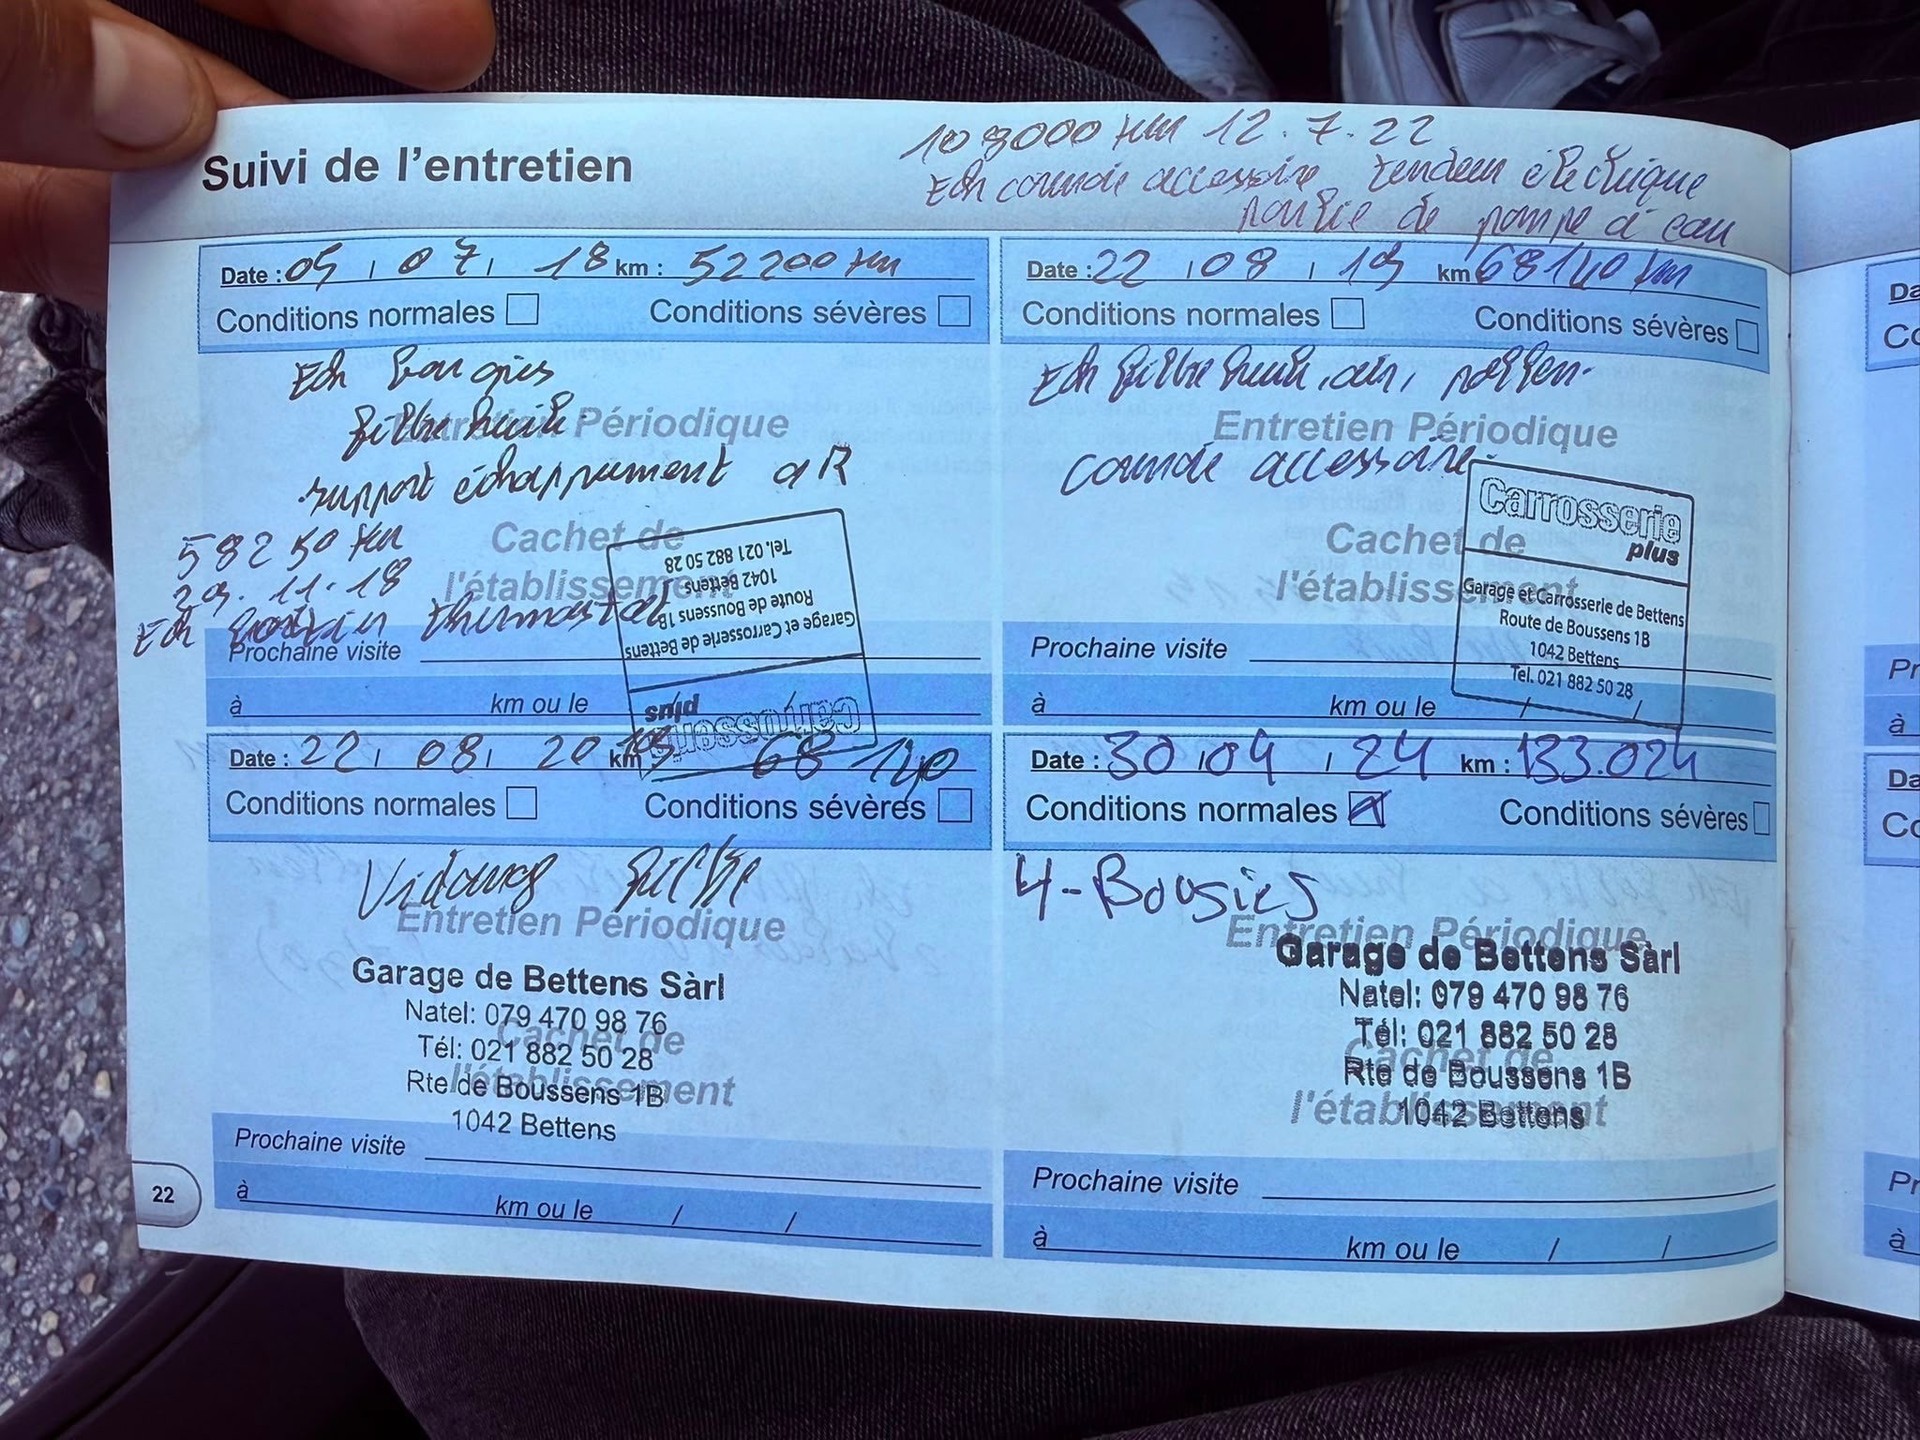 Suivi de l'entretien
109000 km 12.7.22
Ech courroie accessoire tendeur électrique
poulie de pompe à eau
Date : 05 / 07 / 18 km : 52200 km
Conditions normales Conditions sévères
Ech bougies
filtre huile
support échappement aR
Entretien Périodique
58250 km
29.11.18
Ech boitier thermostat
Cachet de
l'établissement
Carrosserie
plus
Garage et Carrosserie de Bettens
Route de Boussens 1B
1042 Bettens
Tel. 021 882 50 28
Prochaine visite
à km ou le /
Date : 22 08 19 km 68140 km
Conditions normales Conditions sévères
Ech filtre huile, air, pollen.
Entretien Périodique
courroie accessoire.
Cachet de
l'établissement
Carrosserie
plus
Garage et Carrosserie de Bettens
Route de Boussens 1B
1042 Bettens
Tel. 021 882 50 28
Prochaine visite
à km ou le / /
Date : 22 08 20 km 68 140
Conditions normales Conditions sévères
Vidange filtre
Entretien Périodique
Garage de Bettens Sàrl
Natel: 079 470 98 76
Cachet de
Tél: 021 882 50 28
l'établissement
Rte de Boussens 1B
1042 Bettens
Prochaine visite
à km ou le / /
Date : 30 04 24 km : 133.024
Conditions normales Conditions sévères
4-Bougies
Entretien Périodique
Garage de Bettens Sàrl
Natel: 079 470 98 76
Tél: 021 882 50 28
Cachet de
Rte de Boussens 1B
l'établissement
1042 Bettens
Prochaine visite
à km ou le / /
22
Da
Co
Pr
à
Da
Co
Pr
à